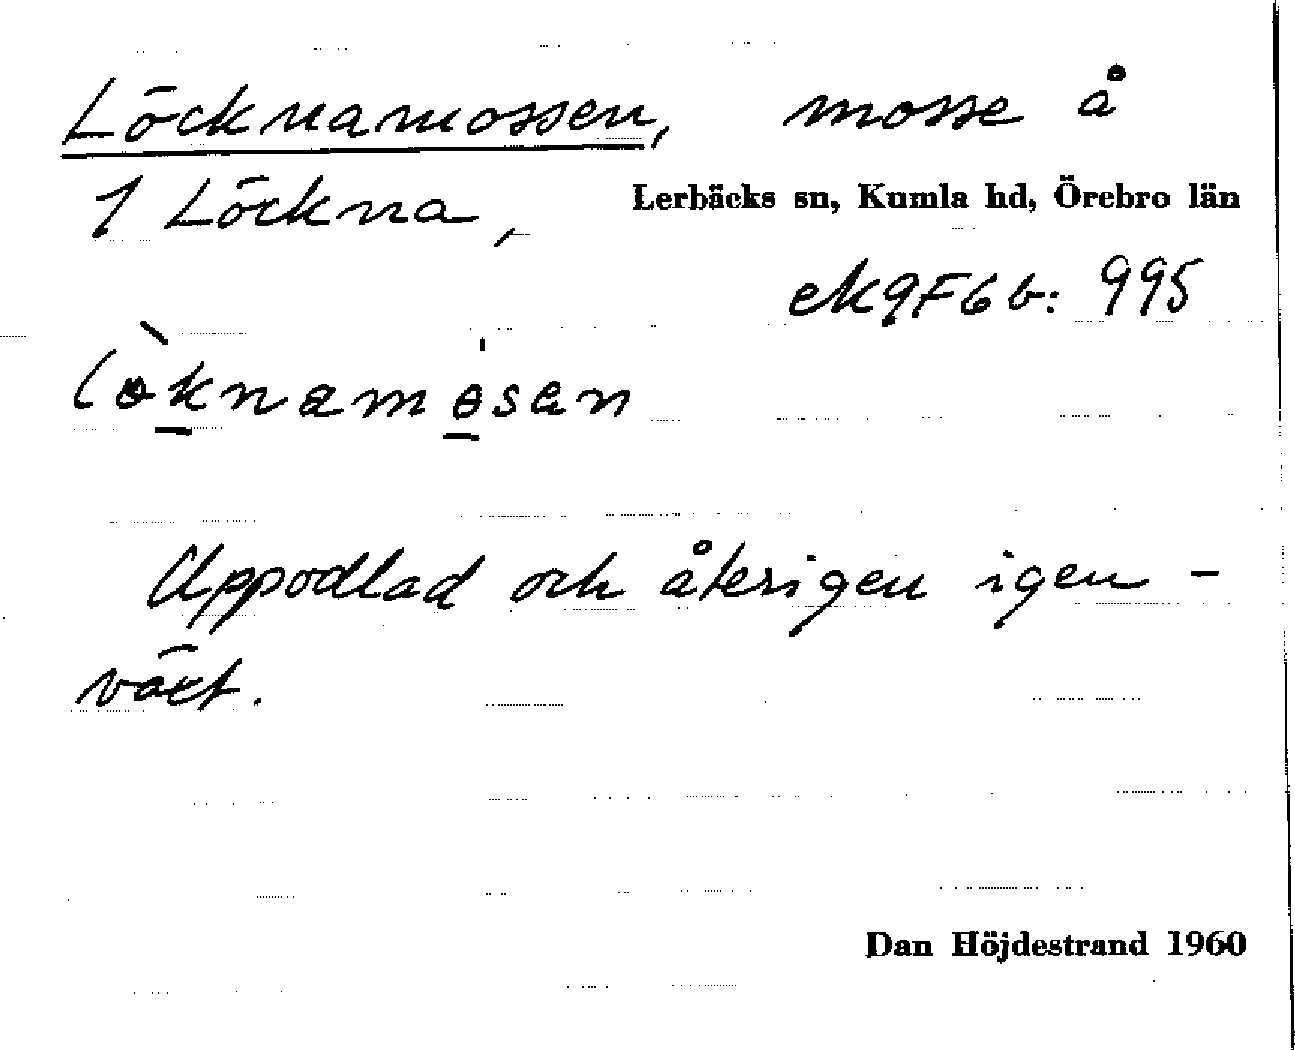 Löcknamossen, mosse å
1 Löckna, Lerbäcks sn, Kumla hd, Örebro län
ek 9F6b: 995
löknamosen
Uppodlad och återigen igen-
växt.
Dan Höjdestrand 1960